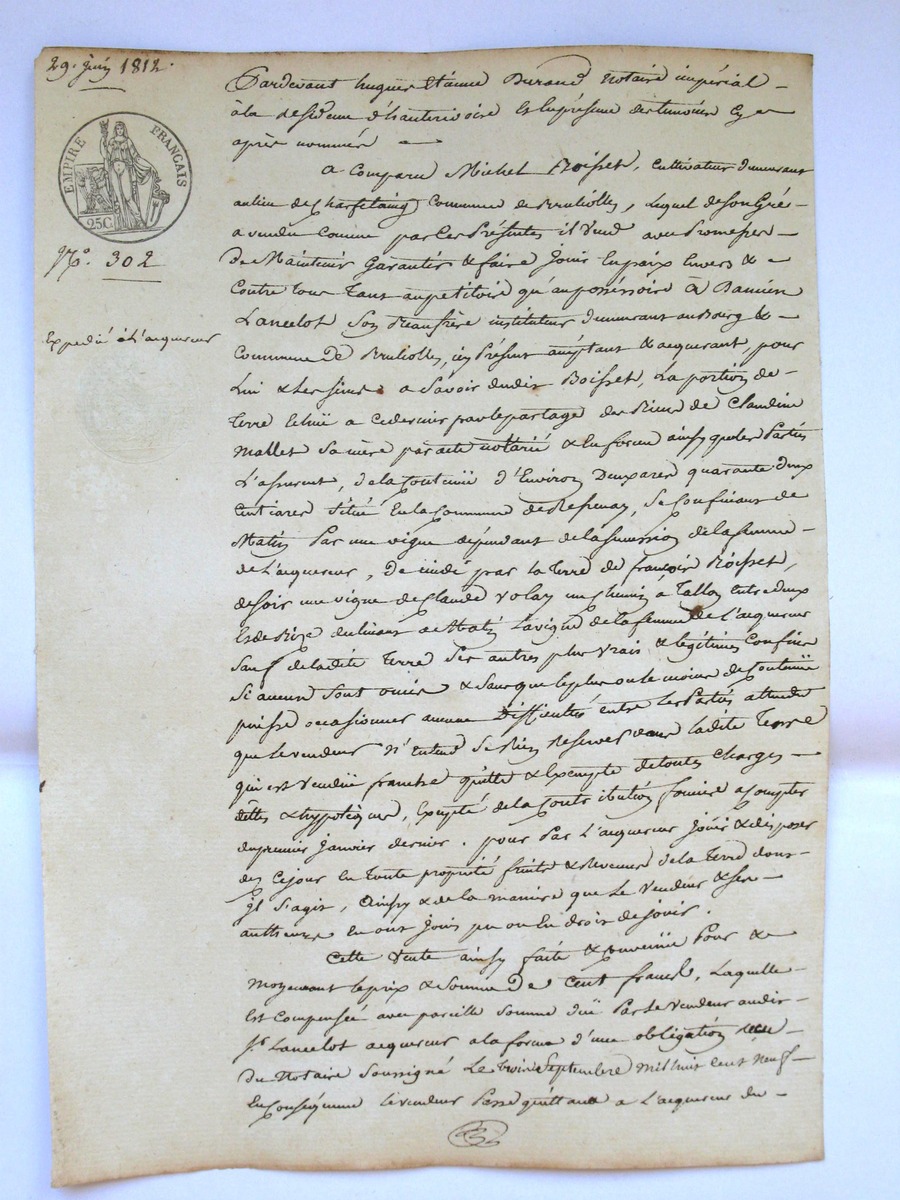 29. juin 1812.
EMPIRE FRANÇAIS
25C
N.º 302
Expedié à l'acquereur
Pardevant hugues Etienne Durand Notaire impérial
à la residence d'hauterivoire & en presence des temoins cy
après nommés
a Comparu Michel Boisset, cultivateur demeurant
au lieu de Commune de Brullioles, lequel de son Gré
a vendu Comme par Ces Présentes il Vend avec Promesses
De Maintenir Garantir & faire Jouir En paix Envers &
Contre tous tant au petitoire qu'au possessoire à Damien
Lancelot Son Beaufrère instituteur demeurant au Bourg &
Commune De Brullioles, icy Présent acceptant & acquerant, pour
Lui & les siens a Savoir dudit Boisset, La portion de
terre Echüe a ce dernier par le partage des Biens de Claudine
Mallet Sa mère par acte notarié & En forme ainsy que les Parties
L'assurent, de la Contenüe d'Environ Deux ares quarante deux
Centiares Située En la Commune de, Se Confinant de
Matin Par une vigne dépendant de la succession de la femme
de L'acquereur, De midi par la terre de françois Boisset,
de soir une vigne de Claude Volay un chemin à Tallon Entre deux
Et de Bize declinant a Matin La vigne de la femme de L'acquereur
Sauf de la dite terre Ses autres plus vrais & légitimes Confins
Si aucuns Sont omis & Sans que le plus ou le moins de Contenüe
puisse occasionner aucune difficultés entre les Parties attendu
que le vendeur N'Entend Se Rien Reserver dans ladite Terre
qui est Vendüe franche quitte & Exempte de toutes Charges
dettes & hypotèques, Excepté de la Contribution fonciere a Compter
du premier Janvier dernier. pour Par L'acquereur Jouir & disposer
dès Ce jour En toute propriété fruits & Revenus de la Terre dont
Il S'agit, Ainsy & de la maniere que Le Vendeur & ses
autheurs En ont Joui pu ou En droit de Jouir.
Cette Vente ainsy faite & Convenüe Pour &
Moyennant le prix & Somme De Cent francs, Laquelle
Est Compensée avec pareille Somme Düe Par Le Vendeur audit
S.r Lancelot acquereur a la forme d'une obligation recue
Du Notaire Soussigné Le Trois Septembre Mil huit Cent Neuf
En Conséquence Le vendeur Passe quittance a L'acquereur du